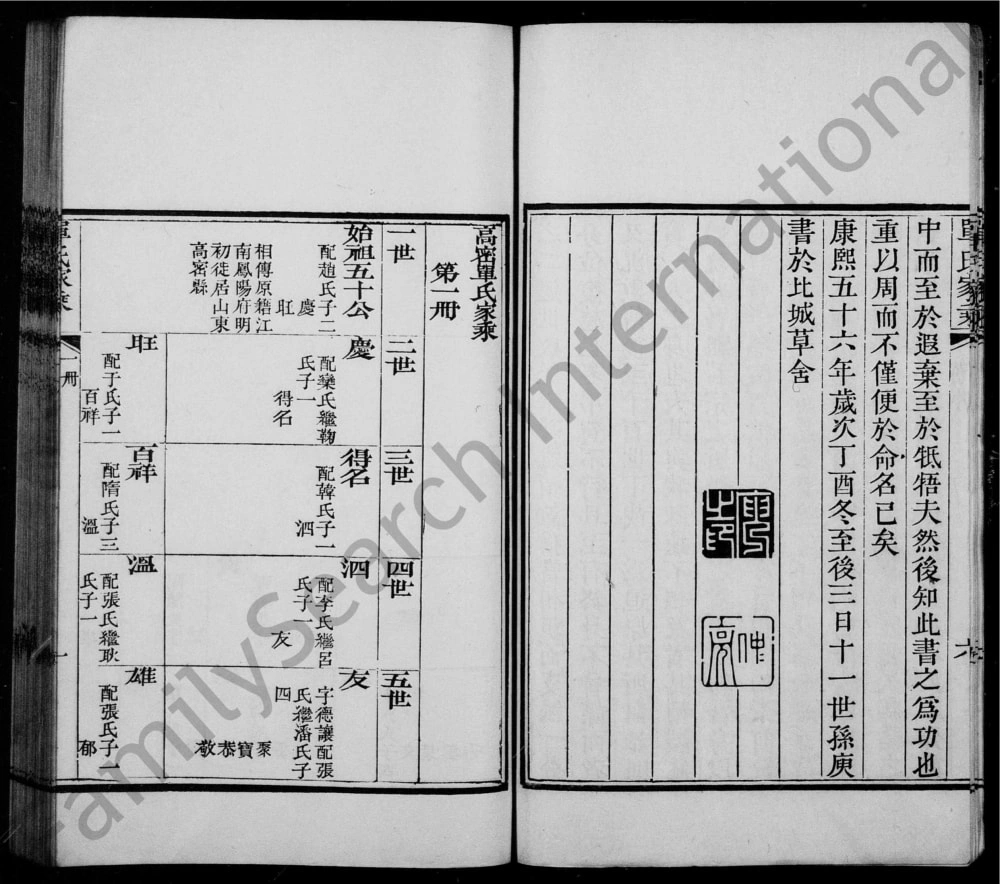 中而至於遐棄至於牴牾夫然後知此書之爲功也
重以周而不僅便於命名已矣
康熙五十六年歲次丁酉冬至後三日十一世孫庾
書於比城草舍
單氏家乘
高密單氏家乘
第一冊
一世
二世
三世
四世
五世
始祖五十公
配趙氏子二
慶
瓩
相傳原籍江
南鳳陽府明
初徙居山東
高密縣
慶
配欒氏繼鞠
氏子一
得名
得名
配韓氏子一
泗
泗
配李氏繼呂
氏子一
友
友
字德讓配張
氏繼潘氏子
四
聚寶恭敬
配于氏子一
百祥
百祥
配隋氏子三
溫
溫
配張氏繼耿
氏子一
雄
配張氏子一
郁
單氏家乘
一冊
一
FamilySearch International